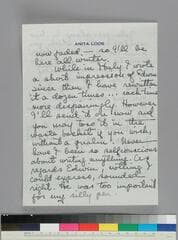 ANITA LOOS
now faded — so I'll be
here all winter.
While in Italy I wrote
a short impression of Edwin
since then I have rewritten
it a dozen times ... each time
more despairingly. However
I'll send it on now and
you may toss it in the
waste basket if you wish,
without a qualm! Never
have I been so selfconscious
about writing anything. As
regards Edwin, nothing I
could express, sounded
right. He was too important
for my silly pen